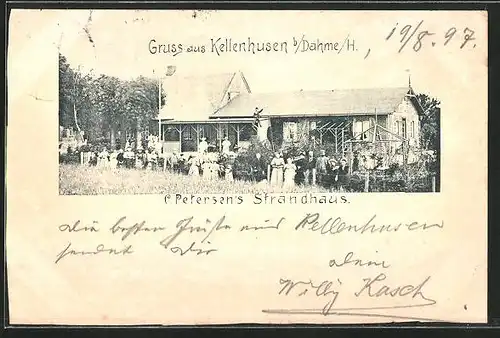 Gruss aus Kellenhusen b/Dahme/H.
19/8. 97.
C. Petersen's Strandhaus.
die besten Grüße aus Kellenhusen
sendet Dir
dein
Willy Kasch